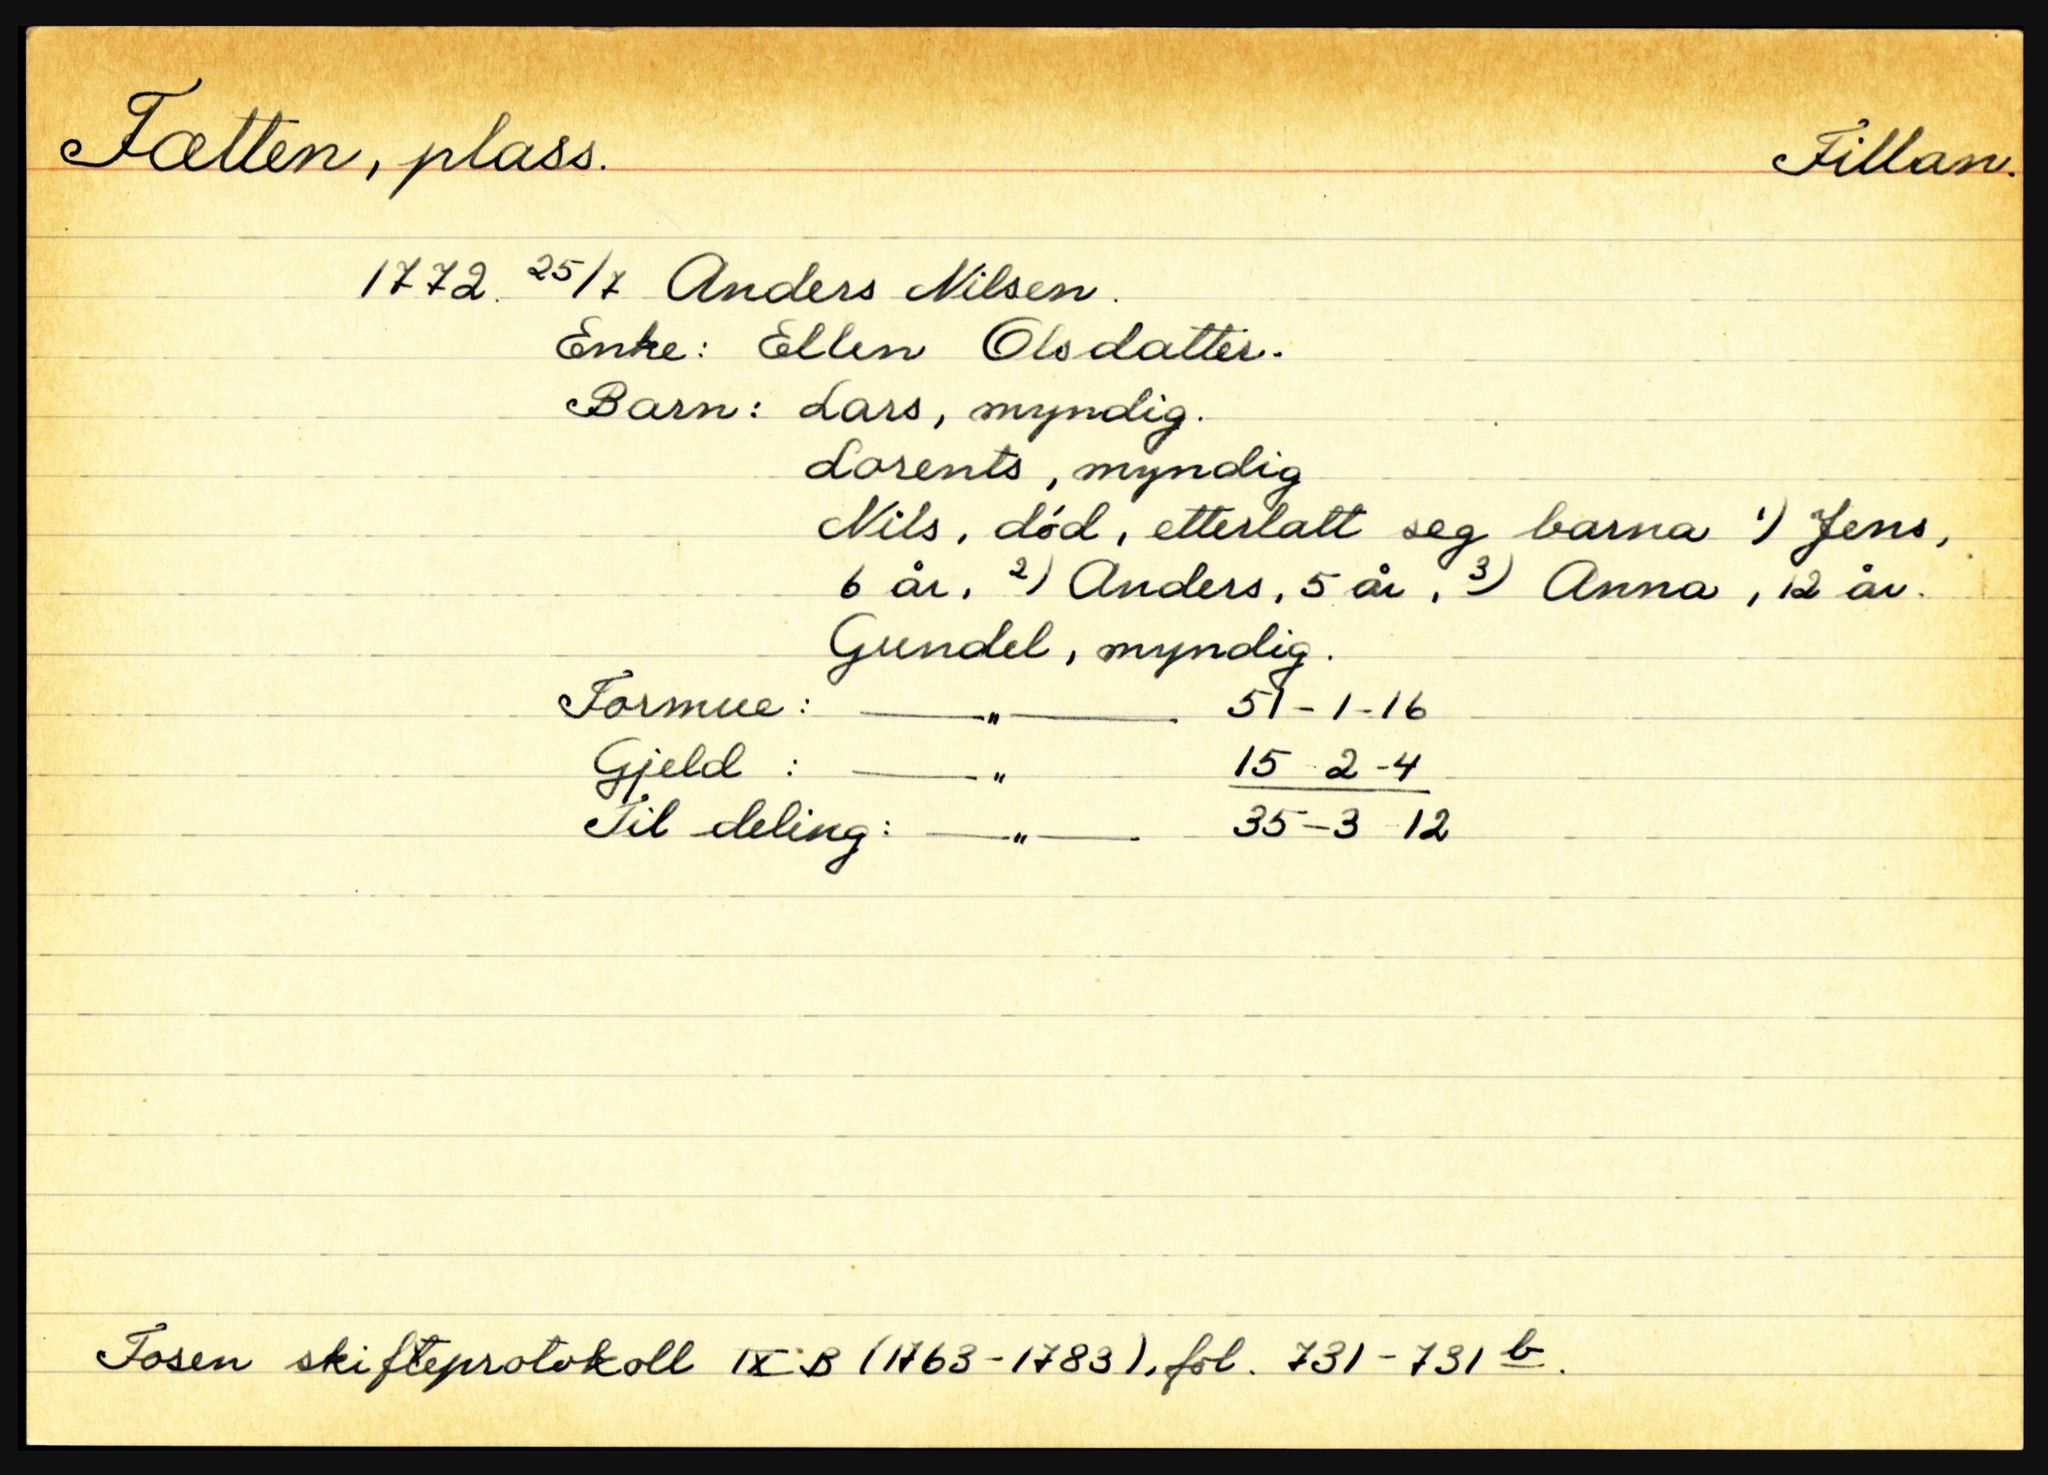 Fætten, plass. Fillan.
1772. 25/7 Anders Nilsen.
Enke: Ellen Olsdatter.
Barn: Lars, myndig.
Lorents, myndig
Nils, død, etterlatt seg barna 1) Jens,
6 år, 2) Anders, 5 år, 3) Anna, 12 år.
Gundel, myndig.
Formue: —"— 51-1-16
Gjeld : —" 15 2-4
Til deling: —"— 35-3 12
Fosen skifteprotokoll IX B (1763-1783), fol. 731-731 b.